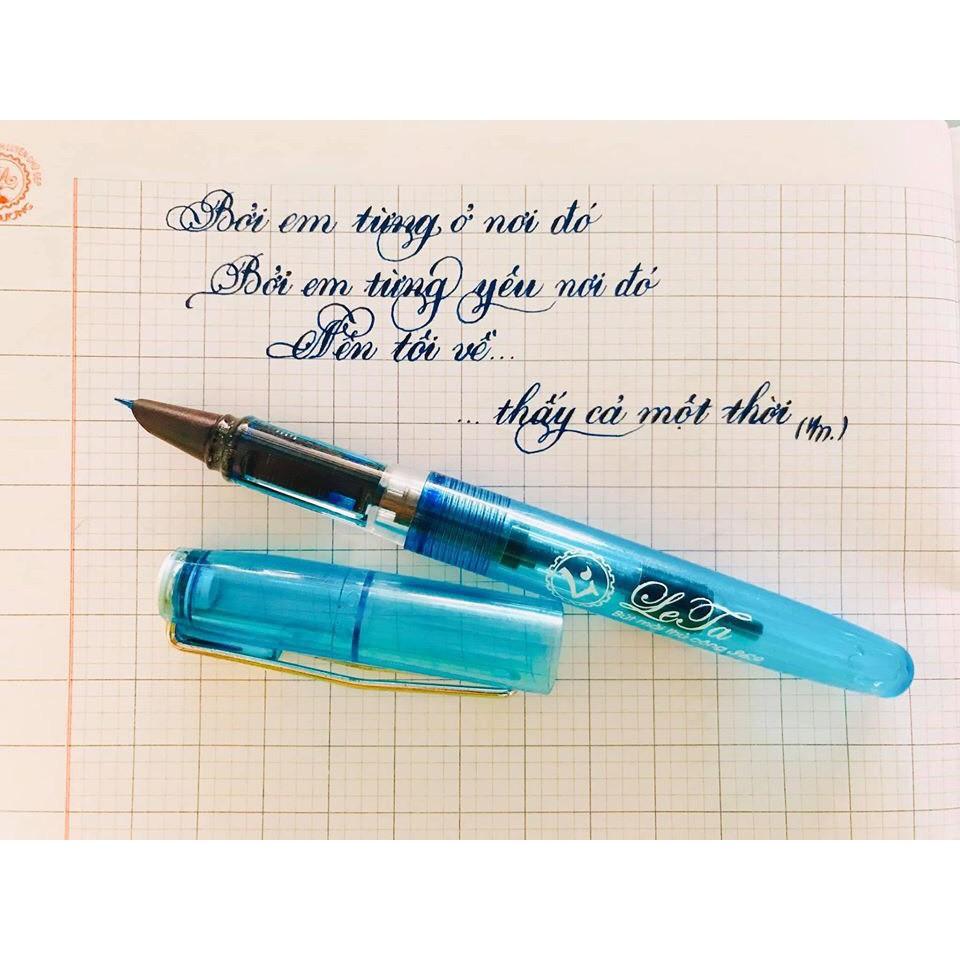 LUYỆN CHỮ ĐẸP
Bởi em từng ở nơi đó
Bởi em từng yêu nơi đó
Nên tôi về...
...thấy cả một thời
LeTa
Bút mài thủ công